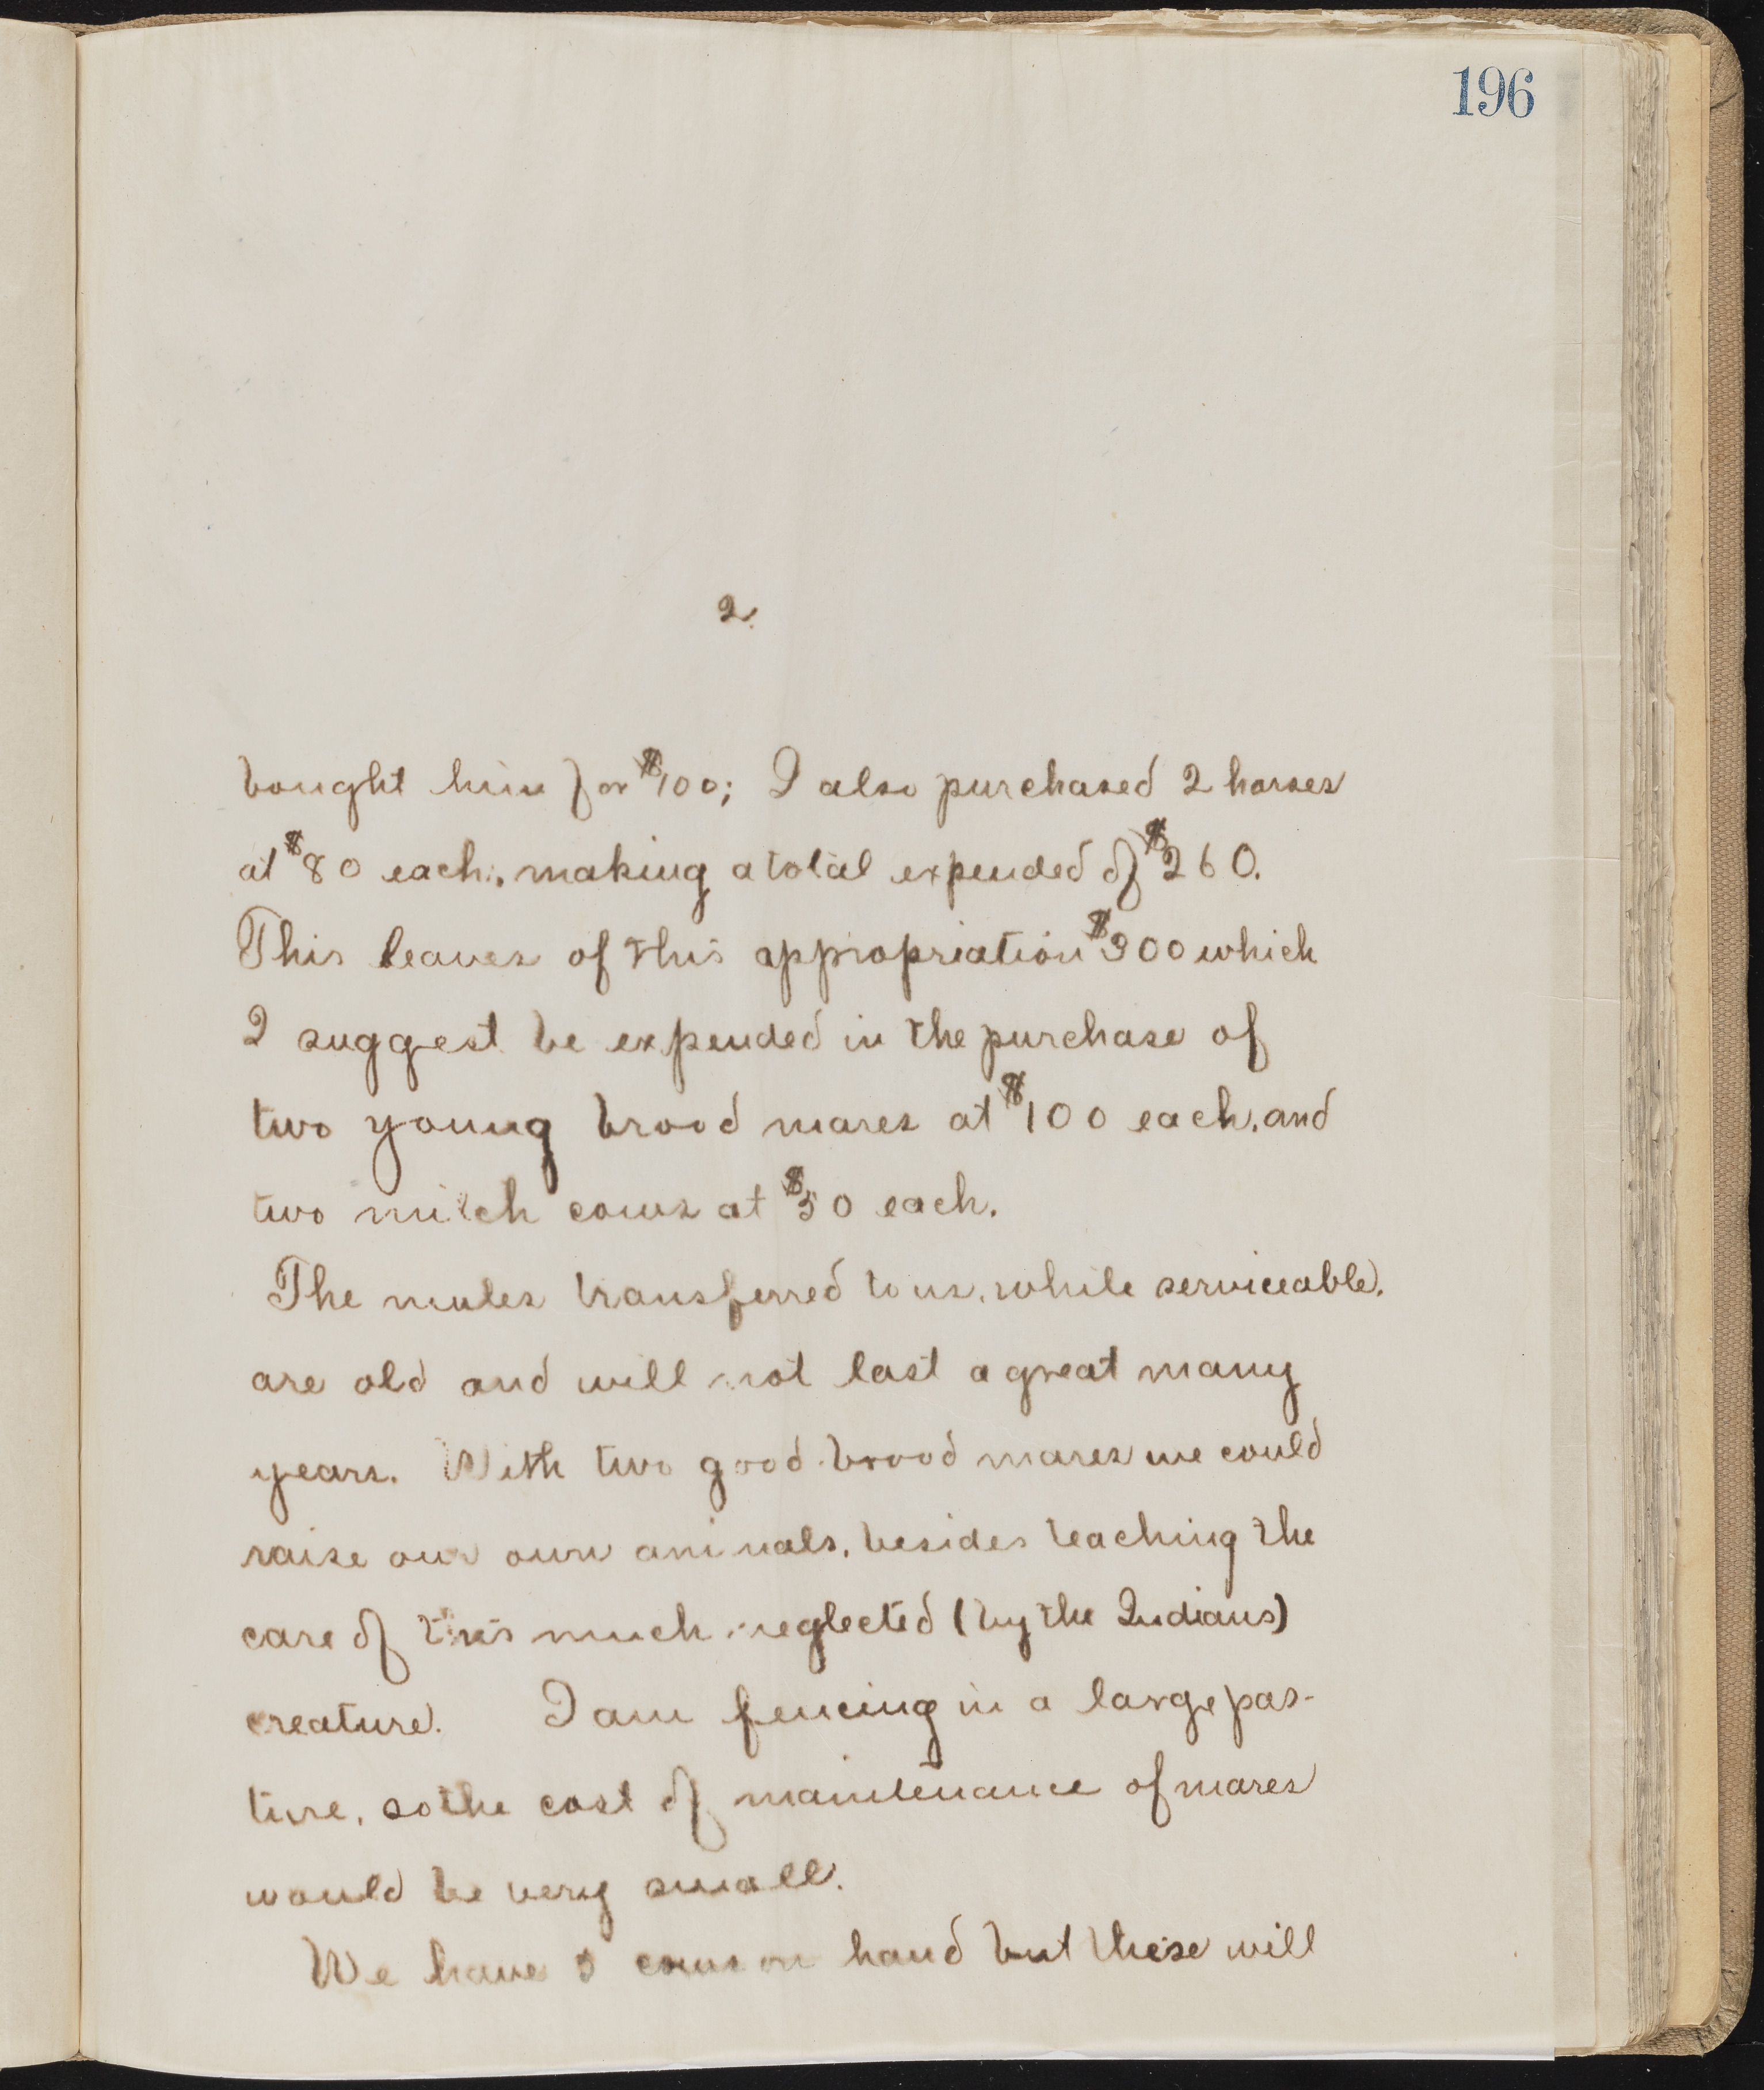 196
2.
bought him for $100; I also purchased 2 horses
at $80 each, making a total expended of $260.
This leaves of this appropriation $300 which
I suggest be expended in the purchase of
two young brood mares at $100 each, and
two milch cows at $50 each.
The mules transferred to us, while serviceable,
are old and will not last a great many
years. With two good brood mares we could
raise our own animals, besides teaching the
care of this much neglected (by the Indians)
creature. I am fencing in a large pas-
ture, so the cost of maintenance of mares
would be very small.
We have 5 cows on hand but these will